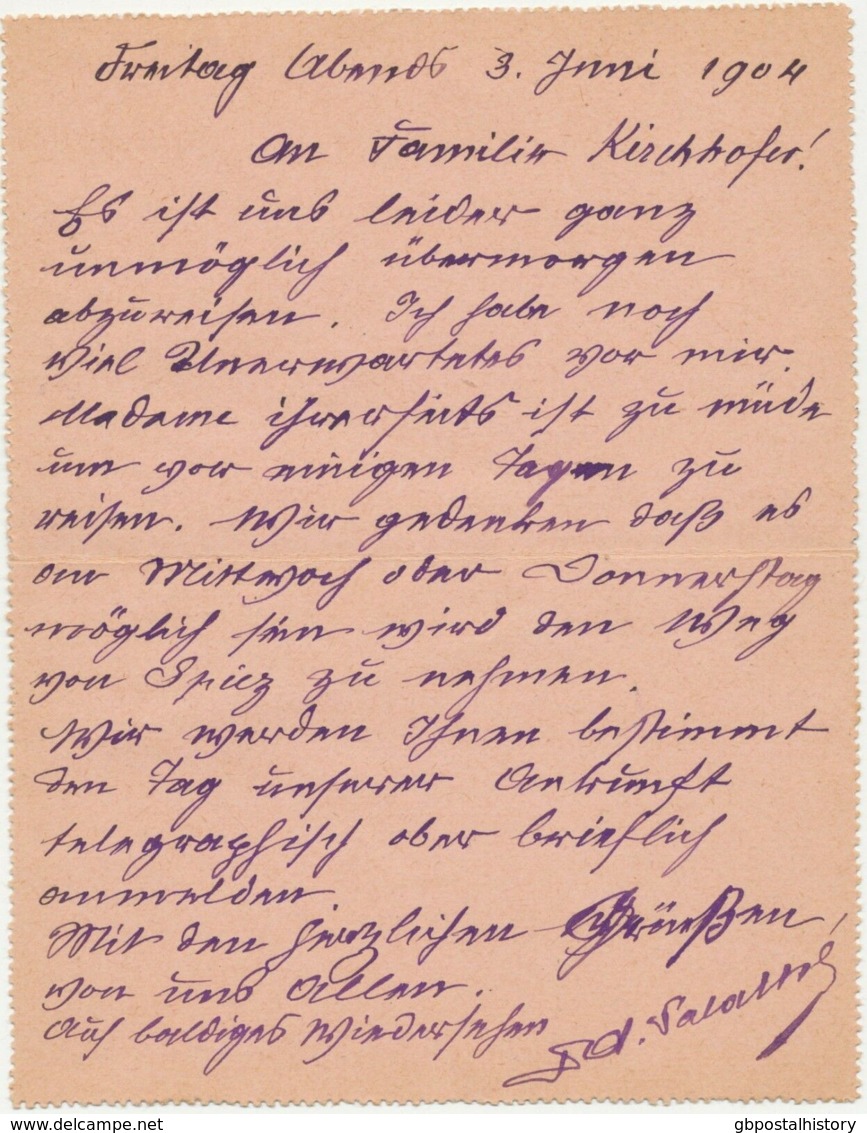 Freitag Abends 3. Juni 1904
An Familie Kirchhofer!
Es ist uns leider ganz
unmöglich übermorgen
abzureisen. Ich habe noch
viel Unerwartetes vor mir.
Madame ihrerseits ist zu müde
um vor einigen Tagen zu
reisen. Wir gedenken daß es
am Mittwoch oder Donnerstag
möglich sein wird den Weg
von Spiez zu nehmen.
Wir werden Ihnen bestimmt
den Tag unserer Ankunft
telegraphisch ober brieflich
anmelden
Mit den herzlichen Grüßen,
von uns Allen.
Auf baldiges Wiedersehen
Ed.
delcampe.net
gbpostalhistory